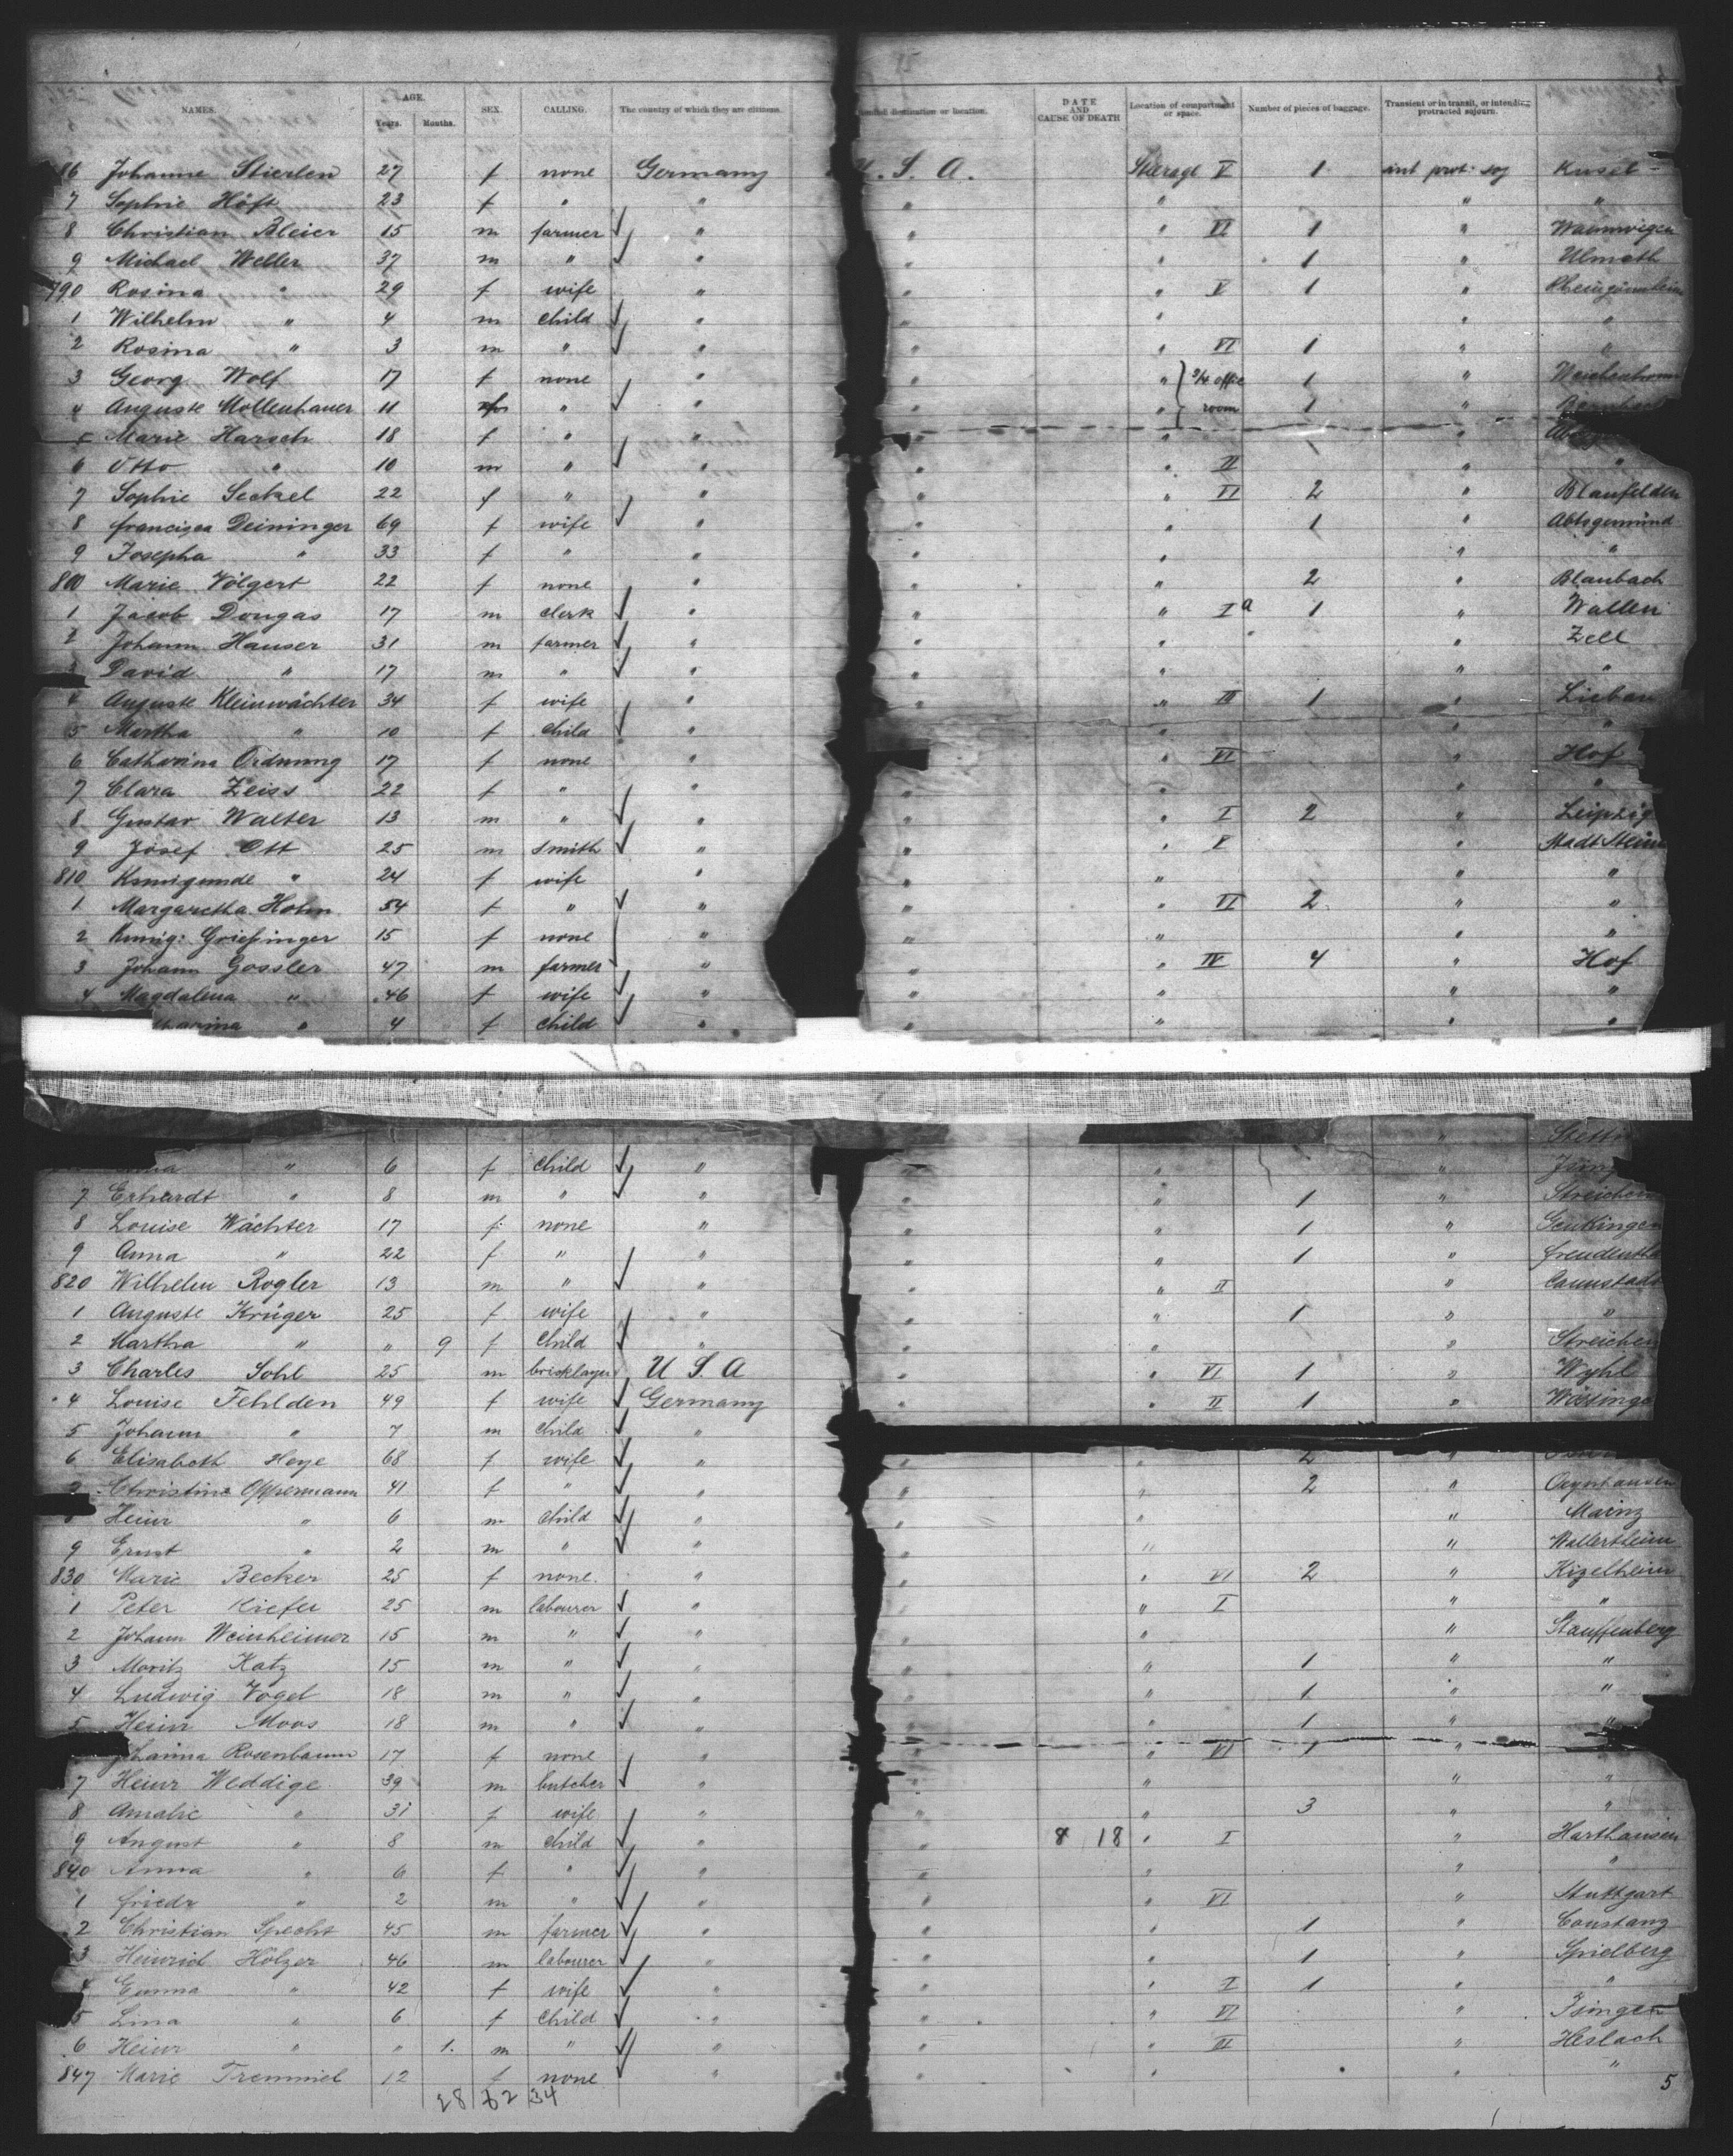 NAMES. AGE. Years. Months. SEX. CALLING. The country of which they are citizens. destination or location. DATE AND CAUSE OF DEATH Location of compartment or space. Number of pieces of baggage. Transient or in transit, or intending protracted sojourn.
86 Johanne Stierlen 27 f none Germany U. S. A. Steerage V 1 int prot. soj Kusel
7 Sophie Höft 23 f " " " " " "
8 Christian Bleier 15 m farmer " " " VI 1 "
9 Michael Weller 37 m " " " " 1 " Ulmeth
790 Rosina " 29 f wife " " " V 1 "
1 Wilhelm " 4 m child " " " " "
2 Rosina " 3 m " " " " VI 1 " "
3 Georg Wolf 17 f none " " " 3/4 office 1 "
4 Auguste Mollenhauer 11 " " " " room 1 "
5 Marie Harsch 18 f " " " " "
6 Otto " 10 m " " " " II " "
7 Sophie Seckel 22 f " " " " VI 2 " Blaufelden
8 Francisca Deininger 69 f wife " " " 1 " Abtsgemünd
9 Josepha " 33 f " " " " " "
800 Marie Völgert 22 f none " " " 2 " Blaubach
1 Jacob Dougas 17 m clerk " " " I a 1 " Wallen
2 Johann Hauser 31 m farmer " " " " " Zell
3 David " 17 m " " " " " "
4 Auguste Kleinwächter 34 f wife " " " III 1 " Liebau
5 Martha " 10 f child " " " " "
6 Catharina Ordnung 17 f none " " " VI " Hof
7 Clara Zeiss 22 f " " " " " "
8 Gustav Walter 13 m " " " " I 2 " Leipzig
9 Josef Ott 25 m smith " " " V " Stadt Stein
810 Kunigunde " 24 f wife " " " " "
1 Margaretha Hohn 54 f " " " " VI 2 " "
2 Kunig: Grießinger 15 f none " " " " "
3 Johann Gossler 47 m farmer " " " IV 4 " Hof
4 Magdalena " 46 f wife " " " " "
" 4 f child " " " " "
" 6 f child " " " "
7 Erhardt " 8 m " " " " 1 "
8 Louise Wächter 17 f none " " " 1 "
9 Anna " 22 f " " " " 1 "
820 Wilhelm Rogler 13 m " " " " II " Cannstadt
1 Auguste Krüger 25 f wife " " " 1 " "
2 Martha " " 9 f Child " " " " Streichen
3 Charles Sohl 25 m bricklayer U S A " " VI 1 " Wyhl
4 Louise Fehlden 49 f wife Germany " " II 1 "
5 Johann " 7 m child "
6 Elisabeth Heye 68 f wife " " 2 "
7 Christine Oppermann 41 f " " " " 2 " Oeynhausen
8 Heinr " 6 m child " " " " Mainz
9 Ernst " 2 m " " " " " Wallertheim
830 Marie Becker 25 f none " " " VI 2 "
1 Peter Kiefer 25 m labourer " " " I " "
2 Johann Weinheimer 15 m " " " " " Stauffenberg
3 Moritz Katz 15 m " " " " 1 " "
4 Ludwig Vogel 18 m " " " " 1 " "
5 Heinr Moos 18 m " " " " 1 " "
Johanna Rosenbaum 17 f none " " VI 1 " "
7 Heinr Weddige 39 m butcher " " " "
8 Amalie " 31 f wife " " " 3 " "
9 August " 8 m child " " 8 18 " I " Harthausen
840 Anna " 6 f " " " " " "
1 Friedr " 2 m " " " " VI " Stuttgart
2 Christian Specht 45 m farmer " " " 1 " Constanz
3 Heinrich Hölzer 46 m labourer " " " 1 " Spielberg
4 Emma " 42 f wife " " " I 1 " "
5 Lina " 6 f Child " " " VI " Isingen
6 Heinr " " 1. m " " " " II " Heslach
847 Marie Tremmel 12 f none " " " " "
28 62 34
5